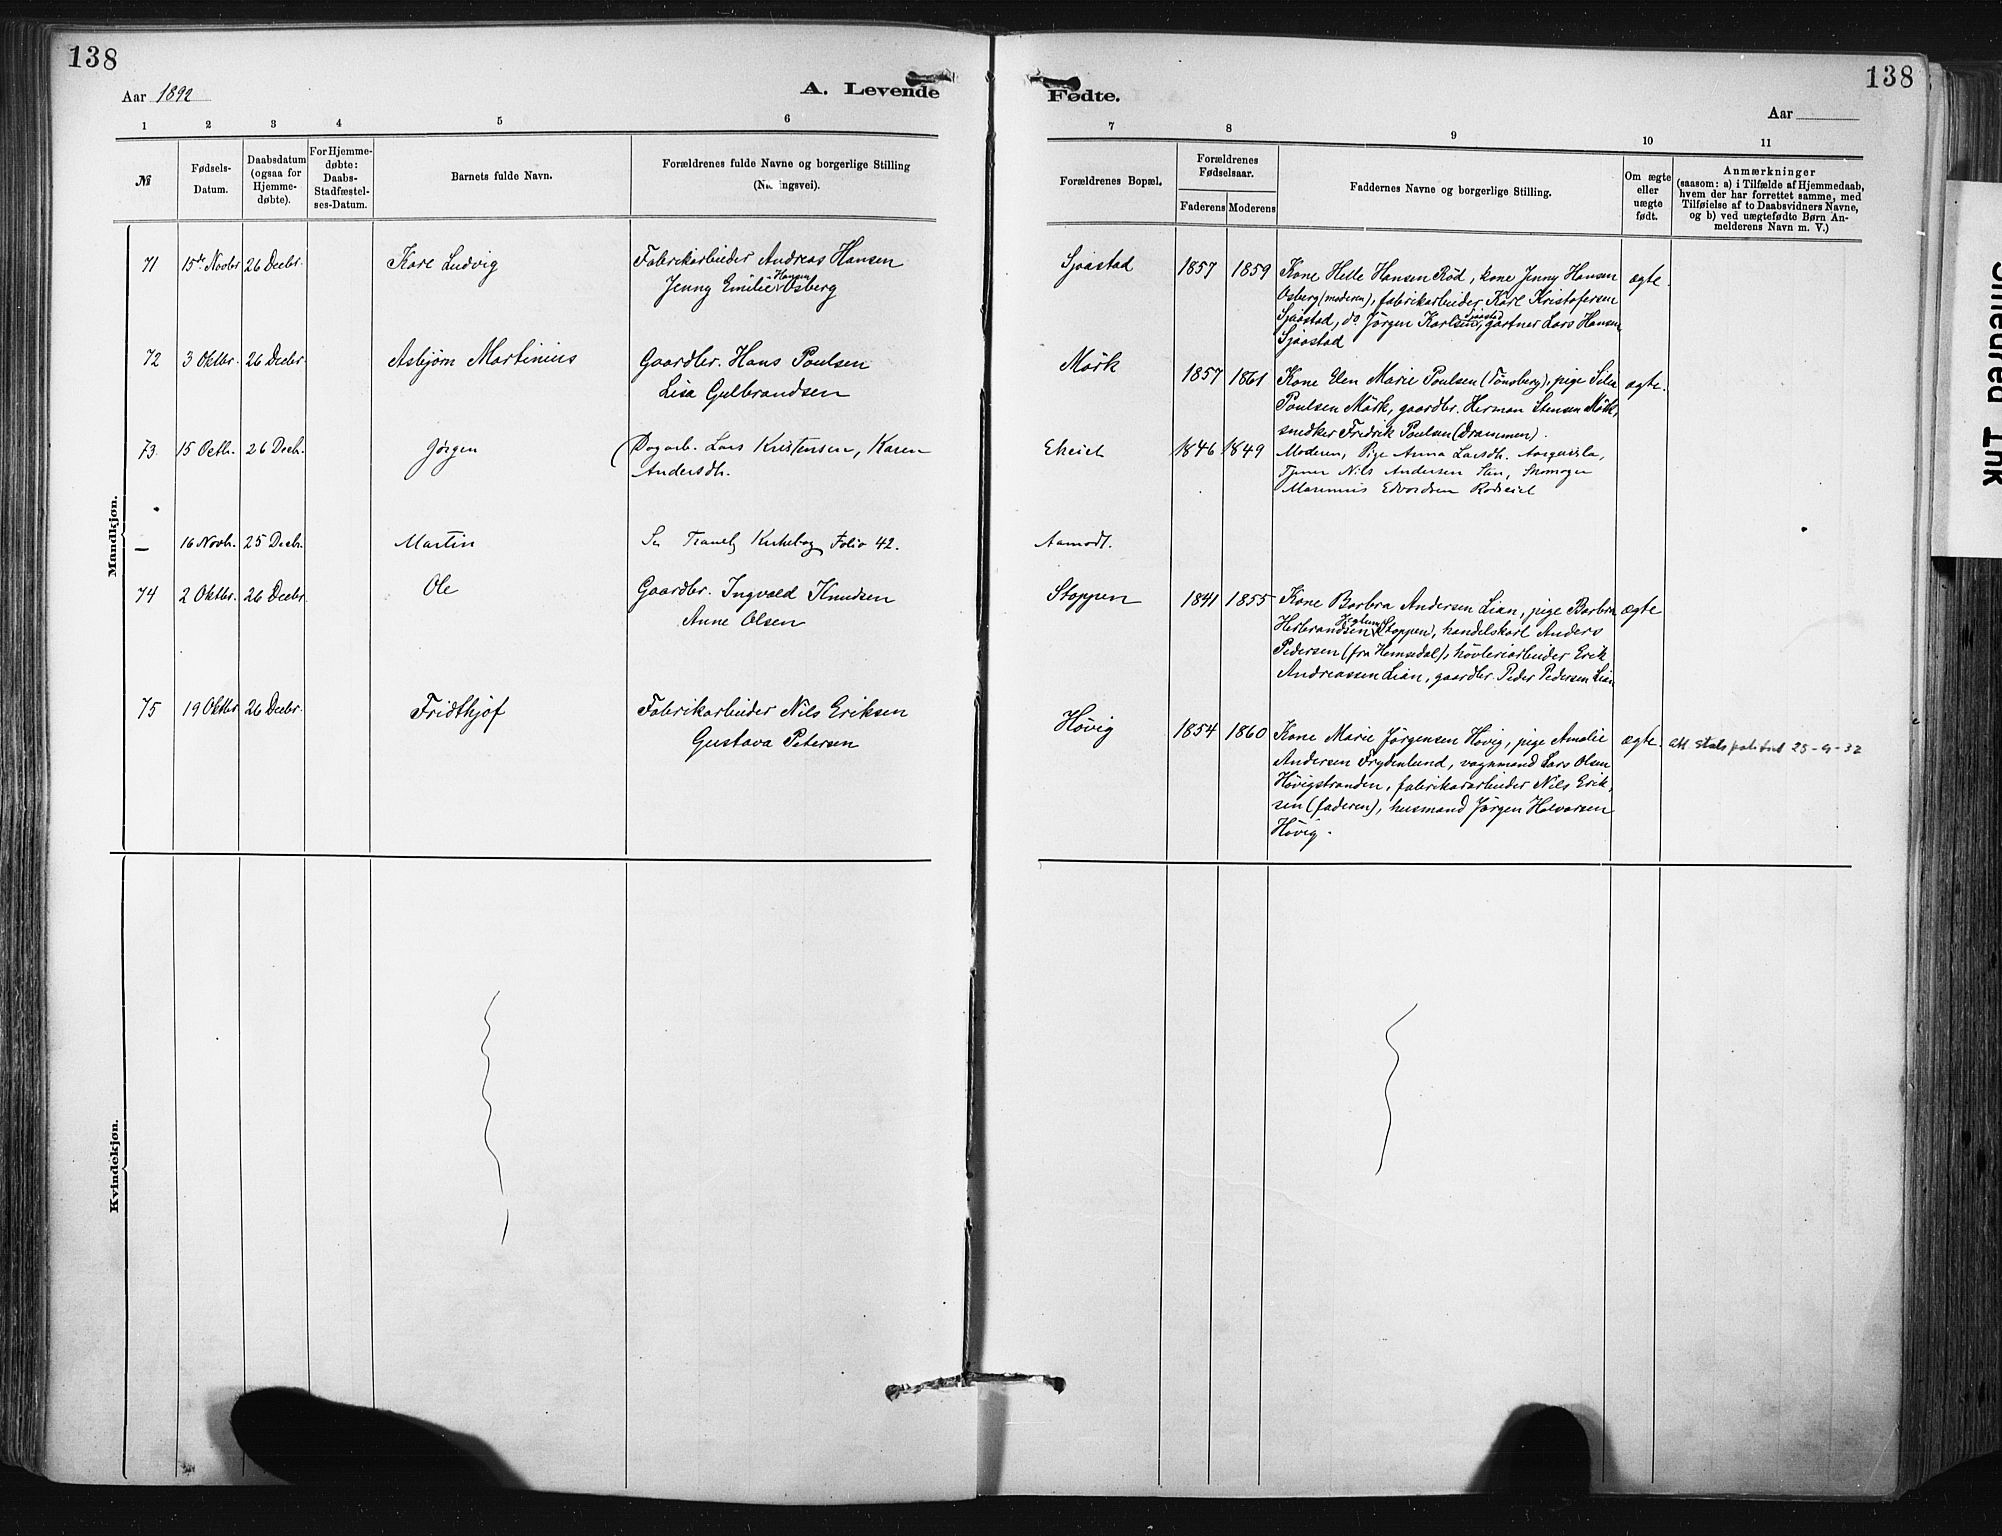 138
138
Aar 1892
A. Levende
Fødte.
Aar
1 2 3 4 5 6
7 8 9 10 11
№
Fødsels-
Datum.
Daabsdatum
(ogsaa for
Hjemme-
døbte).
For Hjemme-
døbte:
Daabs-
Stadfæstel-
ses-Datum.
Barnets fulde Navn.
Forældrenes fulde Navne og borgerlige Stilling
Forældrenes Bopæl.
Forældrenes
Fødselsaar.
Faderens Moderens
Faddernes Navne og borgerlige Stilling.
Om ægte
eller
uægte
født.
Anmærkninger
(saasom: a) i Tilfælde af Hjemmedaab,
hvem der har forrettet samme, med
Tilføielse af to Daabsvidners Navne,
og b) ved uægtefødte Børn An-
melderens Navn m. V.)
Mandkjøn.
71 15de Novbr 26 Decbr. Karl Ludvig
Fabrikarbeider Andreas Hansen
Jenny Emilie Hansen Osberg
Sjaastad 1857 1859
Kone Helle Hansen Rød, kone Jenny Hansen
Osberg (moderen), fabrikarbeider Karl Kristofersen
Sjaastad, do Jörgen Karlsen Sjaastad, gartner Lars Hansen
Sjaastad
ægte.
72 3 Oktbr. 26 Decbr. Asbjørn Martinius
Gaardbr. Hans Poulsen
Lisa Gulbrandsen
Mörk 1857 1861
Kone Elen Marie Poulsen (Tönsberg), pige
Poulsen Mörk, gaardbr. Herman Stensen Mörk,
snedker Fredrik Poulsen (Drammen).
ægte.
73 15 Octb. 26 Decb. Jörgen
Dagarb. Lars Kristensen, Karen
Andersdtr.
1846 1849
Moderen, Pige Anna Larsdtr.
Tjener Nils Andersen Skomager
— 16 Novb. 25 Decb. Martin
Se Traneby Kirkebog Folio 42.
Aamodt.
74 2 Oktbr. 26 Decbr. Ole
Gaardbr. Ingvald Knudsen
Anne Olsen
Stoppen 1841 1855
Kone Barbra Andersen Lian, pige Barbra
Herbrandsen (Stoppen), handelskarl Anders
Pedersen (fra Hemsedal), hövleriarbeider Erik
Andreassen Lian, gaardbr. Peder Pedersen Lian
ægte
75 19 Oktbr 26 Decbr. Fridthjof
Fabrikarbeider Nils Eriksen
Gustava Petersen
Hövig 1854 1860
Kone Marie Jörgensen Hövig, pige Amalie
Andersen Frydenlund, vognmand Lars Olsen
Hövigstranden, fabrikarbeider Nils Erik-
sen (faderen), husmand Jörgen Halvorsen
Hövig.
ægte.
att. statspolitiet 25-4-32
Kvindekjøn.